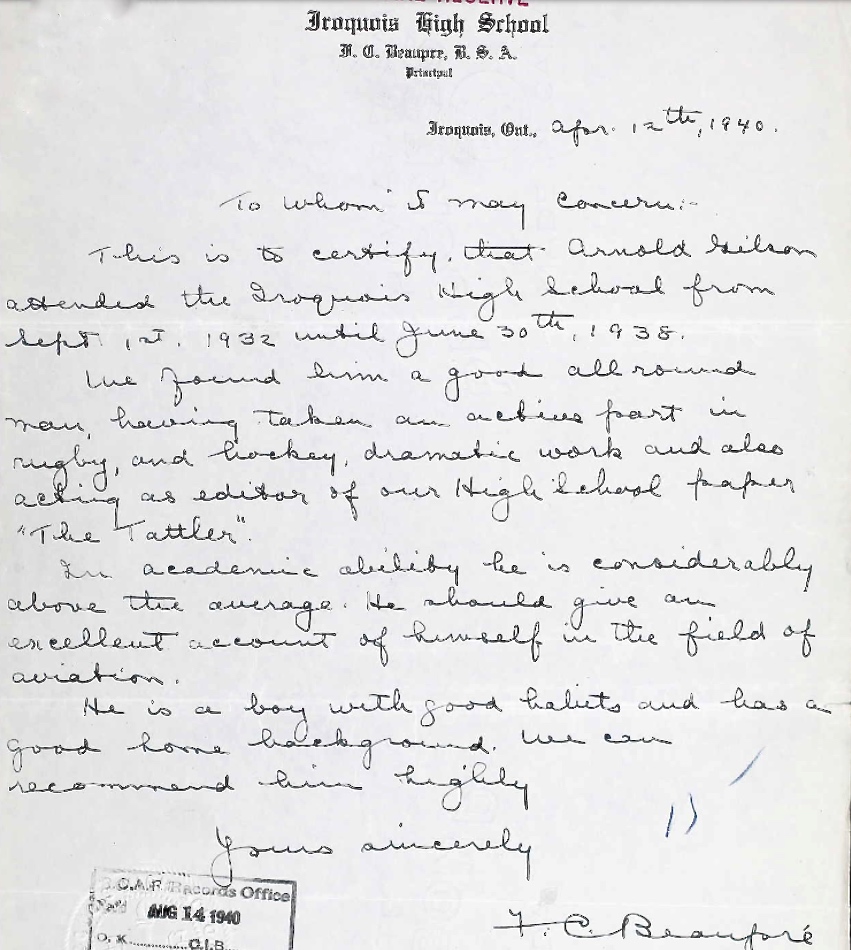 Iroquois High School
F. C. Beaupre, B. S. A.
Principal
Iroquois, Ont., Apr. 12th, 1940.
To whom it may concern:-
This is to certify, that Arnold Gilson
attended the Iroquois High School from
Sept. 1st. 1932 until June 30th, 1938.
We found him a good all round
man, having taken an active part in
rugby, and hockey, dramatic work and also
acting as editor of our High School paper
"The Tattler".
In academic ability he is considerably
above the average. He should give an
excellent account of himself in the field of
aviation.
He is a boy with good habits and has a
good home background. We can
recommend him highly
Yours sincerely
F. C. Beaupré
R.C.A.F. Records Office
AUG 14 1940
O. K. .......... C.I.B.